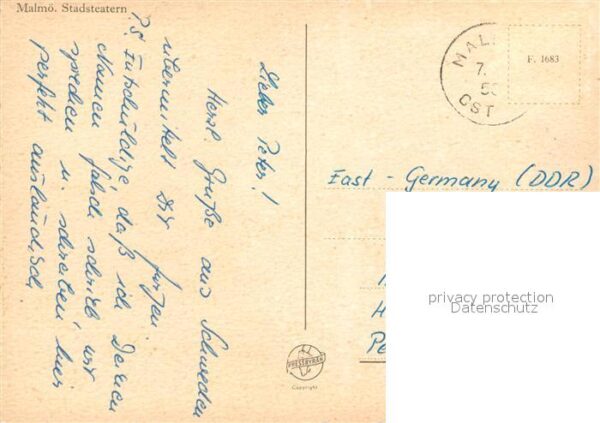 Malmö. Stadsteatern
Lieber Peter!
Herzl. Grüße aus Schweden
übermittelt Dir
Jürgen
P.S. Entschuldige, daß ich Deinen
Namen falsch schrieb wir
sprechen u. schreiben hier
perfekt ausländisch
MAL
7.
CST
F. 1683
East - Germany (DDR)
PRESSBYRÅN
Copyright
privacy protection
Datenschutz